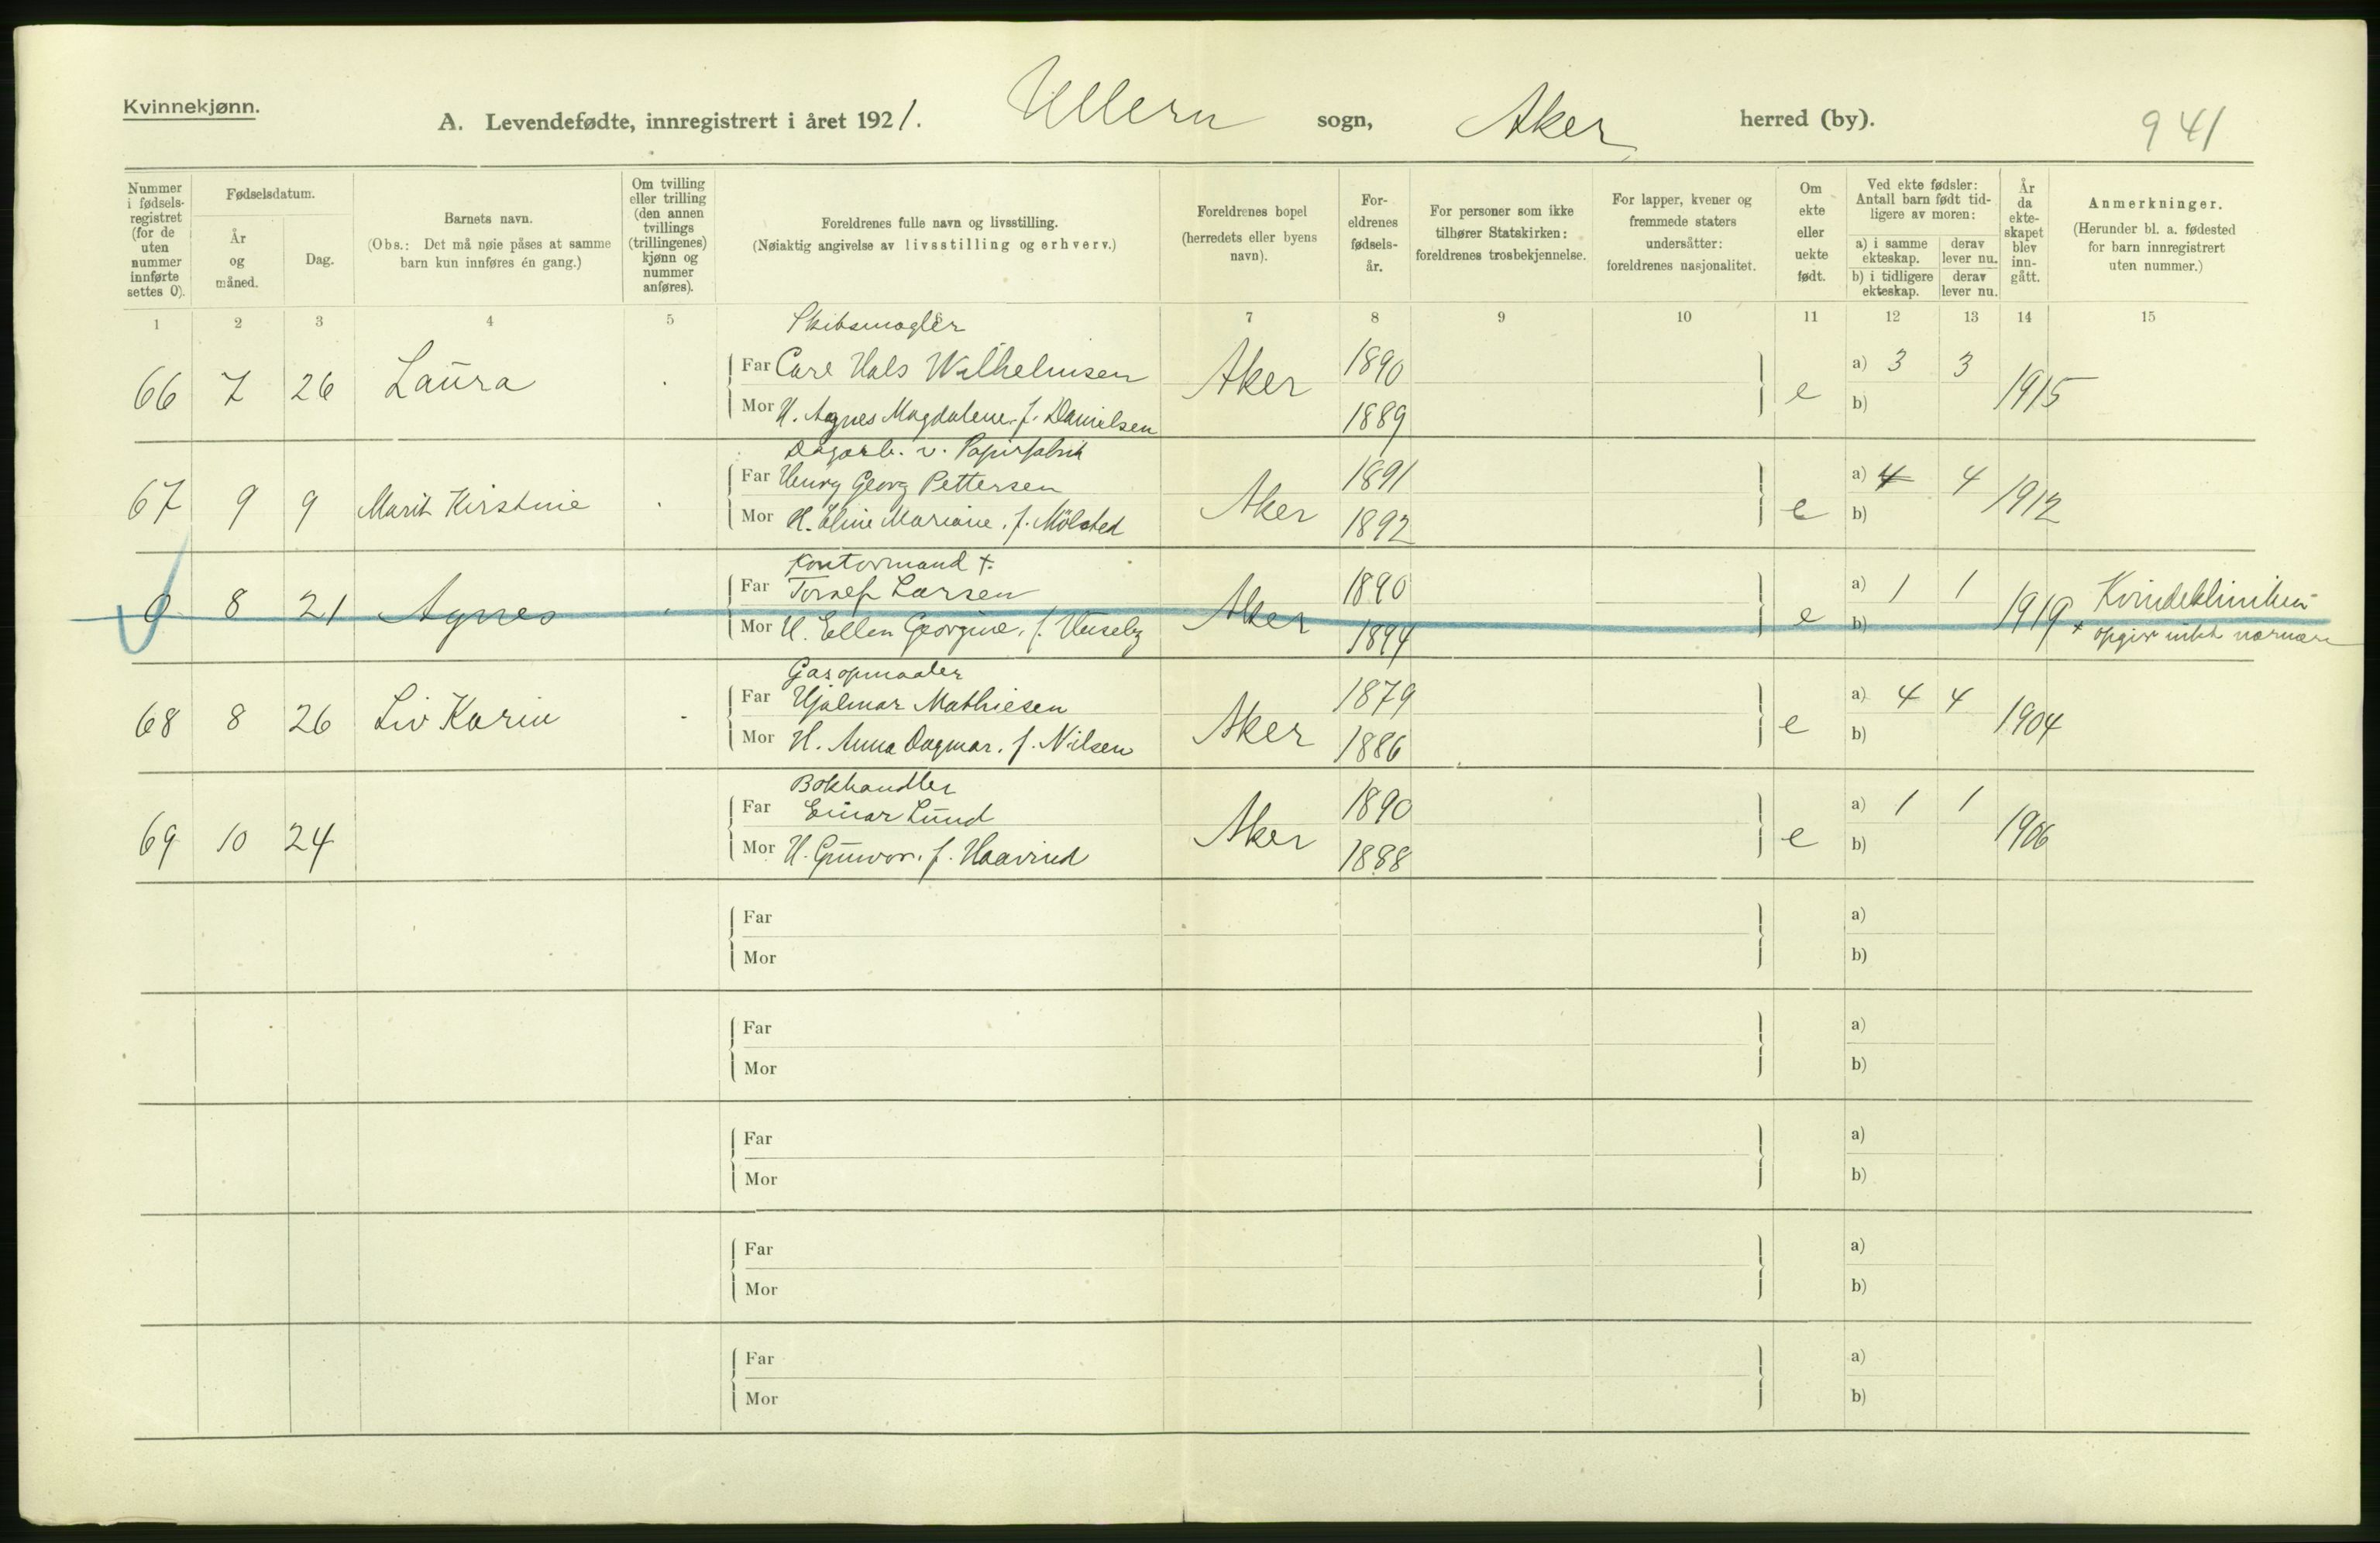 Kvinnekjønn.
A. Levendefødte, innregistrert i året 1921. Ullern sogn, Aker herred (by). 941
Nummer i fødsels-registret (for de uten nummer innførte settes 0).
Fødselsdatum.
År og måned.
Dag.
Barnets navn.
(Obs.: Det må nøie påses at samme barn kun innføres én gang.)
Om tvilling eller trilling (den annen tvillings (trillingenes) kjønn og nummer anføres).
Foreldrenes fulle navn og livsstilling.
(Nøiaktig angivelse av livsstilling og erhverv.)
Foreldrenes bopel (herredets eller byens navn).
For-eldrenes fødsels-år.
For personer som ikke tilhører Statskirken: foreldrenes trosbekjennelse.
For lapper, kvener og fremmede staters undersåtter: foreldrenes nasjonalitet.
Om ekte eller uekte født.
Ved ekte fødsler: Antall barn født tid-ligere av moren:
a) i samme ekteskap.
derav lever nu.
b) i tidligere ekteskap.
derav lever nu.
År da ekte-skapet blev inn-gått.
Anmerkninger.
(Herunder bl. a. fødested for barn innregistrert uten nummer.)
1 2 3 4 5 7 8 9 10 11 12 13 14 15
Skibsmægler
66 7 26 Laura Far Carl Hals Wilhelmsen Aker 1890 e a) 3 3 1915
Mor H. Agnes Magdalene f. Danielsen 1889 b)
Dagarb. v. Papirfabrik
67 9 9 Marit Kirstine Far Henry Georg Pettersen Aker 1891 e a) 4 4 1912
Mor H. Oline Mariane f. Mölsted 1892 b)
Kontormand +
0 8 21 Agnes Far Tornef Larsen Aker 1890 e a) 1 1 1919 Kvindekliniken
Mor H. Ellen Georgine, f. Huseby 1894 b) + opgir nærmere
Gasopmaaler
68 8 26 Liv Karin Far Hjalmar Mathiesen Aker 1879 e a) 4 4 1904
Mor H. Anna Dagmar. f. Nilsen 1886 b)
Bokhandler
69 10 24 Far Einar Lund Aker 1890 e a) 1 1 1906
Mor H. Gunvor. f. Haavind 1888 b)
Far a)
Mor b)
Far a)
Mor b)
Far a)
Mor b)
Far a)
Mor b)
Far a)
Mor b)